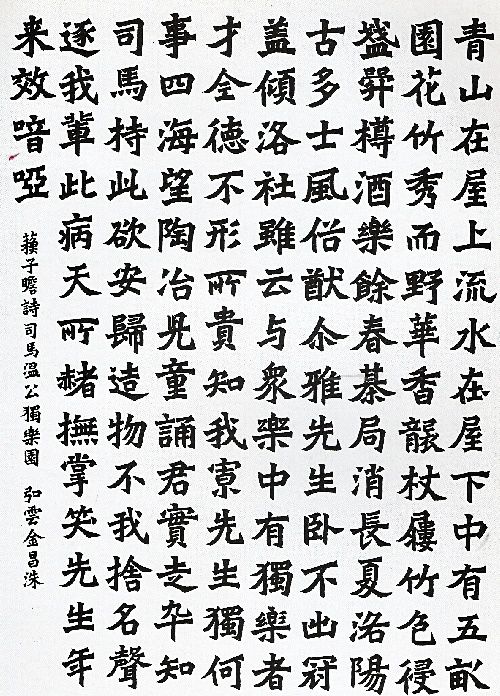 青山在屋上流水在屋下中有五畝
園花竹秀而野華香襲杖屨竹色侵
盞斝樽酒樂餘春棊局消長夏洛陽
古多士風俗猷尒雅先生卧不出冠
盖傾洛社雖云与衆樂中有獨樂者
才全德不形所貴知我寡先生獨何
事四海望陶冶児童誦君實走卒知
司馬持此欲安歸造物不我捨名聲
逐我輩此病天所赭撫掌笑先生年
来效喑啞
蘓子瞻詩司馬溫公獨樂園 弘雲金昌洙